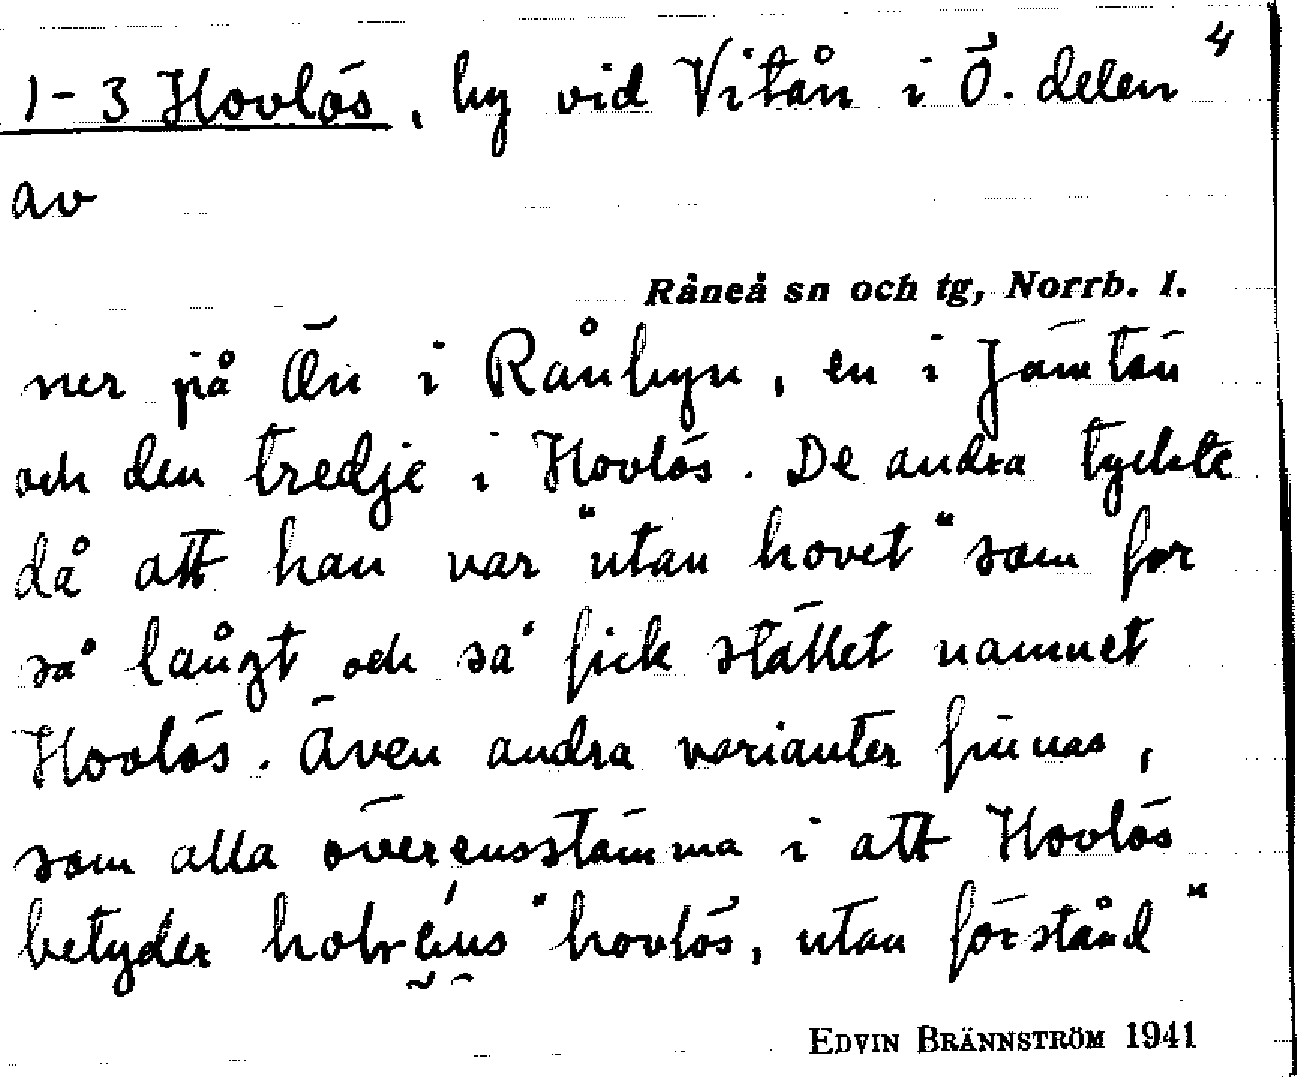 4
1-3 Hovlös, by vid Vitån i Ö. delen
av
Råneå sn och tg, Norrb. l.
ner på Ön i Rånbyn, en i Jämtön
och den tredje i Hovlös. De andra tyckte
då att han var "utan hovet" som for
så långt och så fick stället namnet
Hovlös. Även andra varianter finnas,
som alla överensstämma i att Hovlös
betyder "hovlös, utan förstånd"
EDVIN BRÄNNSTRÖM 1941